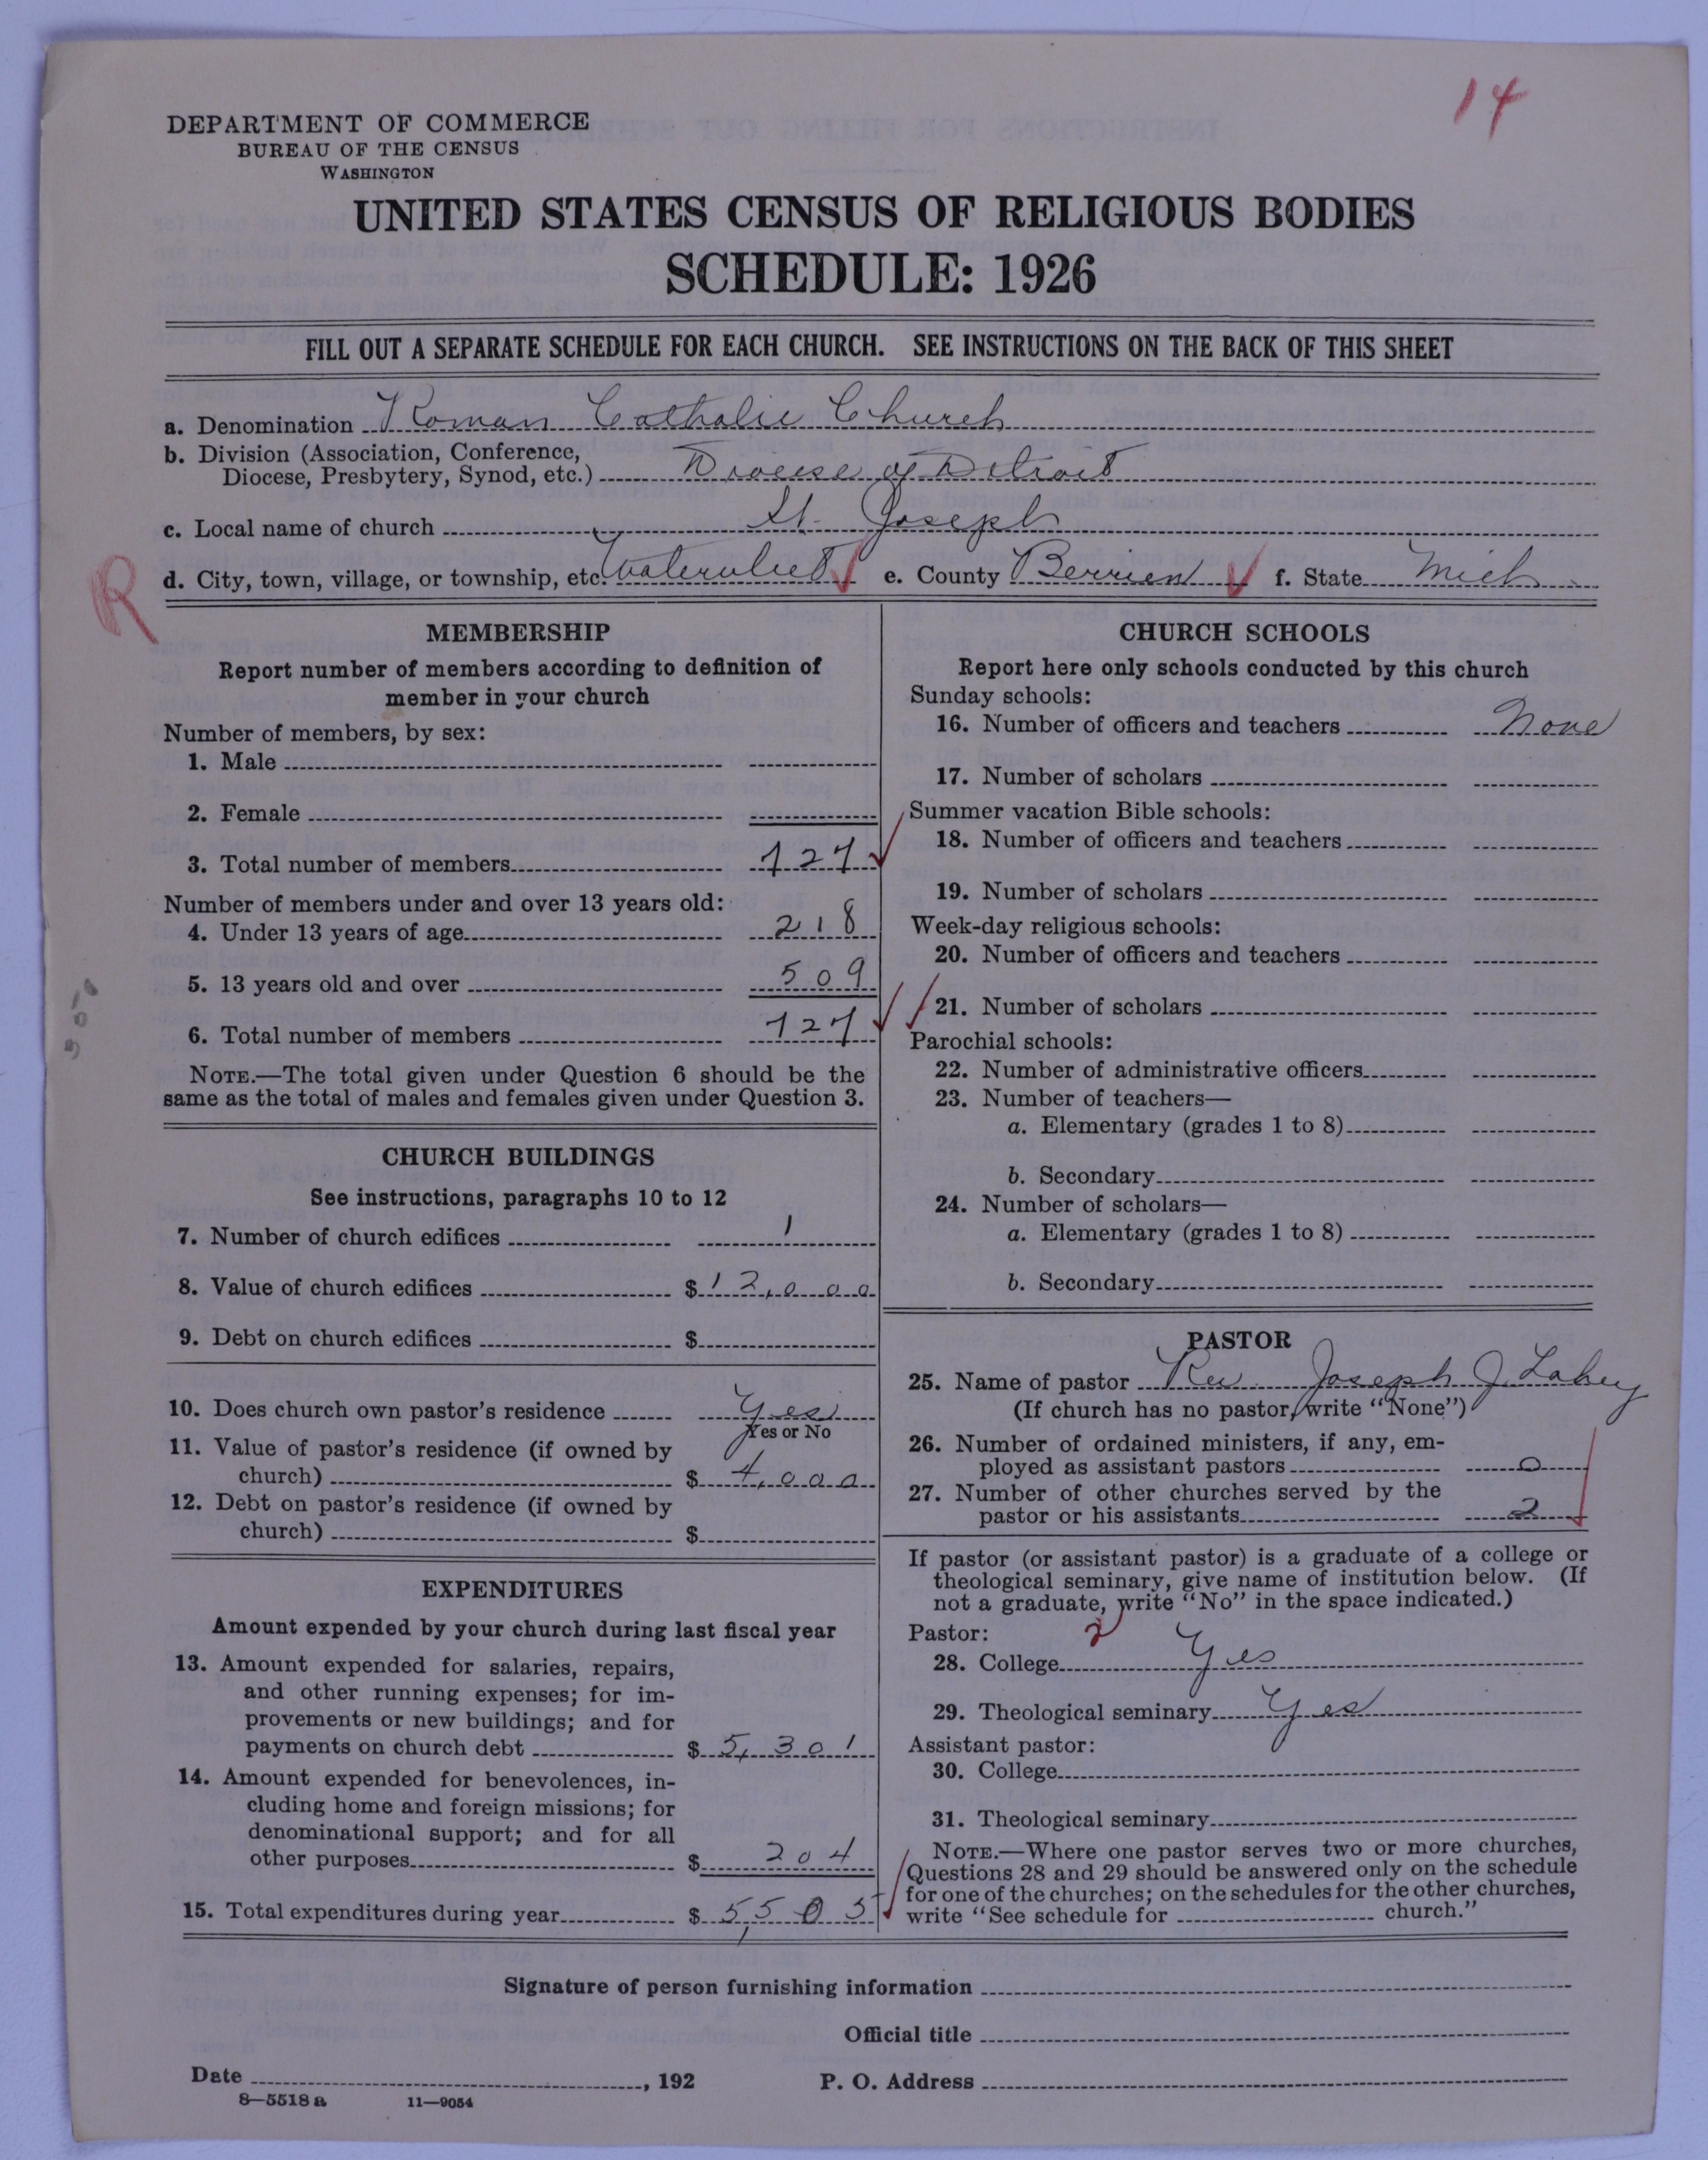 14
DEPARTMENT OF COMMERCE
BUREAU OF THE CENSUS
WASHINGTON
UNITED STATES CENSUS OF RELIGIOUS BODIES
SCHEDULE: 1926
FILL OUT A SEPARATE SCHEDULE FOR EACH CHURCH. SEE INSTRUCTIONS ON THE BACK OF THIS SHEET
a. Denomination Roman Catholic Church
b. Division (Association, Conference,
Diocese, Presbytery, Synod, etc.) Diocese of Detroit
c. Local name of church St. Joseph
R d. City, town, village, or township, etc. Watervliet e. County Berrien f. State Mich
MEMBERSHIP
Report number of members according to definition of
member in your church
Number of members, by sex:
1. Male
2. Female
3. Total number of members 727
Number of members under and over 13 years old:
4. Under 13 years of age 218
5. 13 years old and over 509
6. Total number of members 727
NOTE.—The total given under Question 6 should be the
same as the total of males and females given under Question 3.
CHURCH BUILDINGS
See instructions, paragraphs 10 to 12
7. Number of church edifices 1
8. Value of church edifices $12,000
9. Debt on church edifices $
10. Does church own pastor's residence Yes
Yes or No
11. Value of pastor's residence (if owned by
church) $4,000
12. Debt on pastor's residence (if owned by
church) $
EXPENDITURES
Amount expended by your church during last fiscal year
13. Amount expended for salaries, repairs,
and other running expenses; for im-
provements or new buildings; and for
payments on church debt $5,301
14. Amount expended for benevolences, in-
cluding home and foreign missions; for
denominational support; and for all
other purposes $204
15. Total expenditures during year $5,505
CHURCH SCHOOLS
Report here only schools conducted by this church
Sunday schools:
16. Number of officers and teachers None
17. Number of scholars
Summer vacation Bible schools:
18. Number of officers and teachers
19. Number of scholars
Week-day religious schools:
20. Number of officers and teachers
21. Number of scholars
Parochial schools:
22. Number of administrative officers
23. Number of teachers—
a. Elementary (grades 1 to 8)
b. Secondary
24. Number of scholars—
a. Elementary (grades 1 to 8)
b. Secondary
PASTOR
25. Name of pastor Rev. Joseph J. Lahey
(If church has no pastor, write "None")
26. Number of ordained ministers, if any, em-
ployed as assistant pastors 0
27. Number of other churches served by the
pastor or his assistants 2
If pastor (or assistant pastor) is a graduate of a college or
theological seminary, give name of institution below. (If
not a graduate, write "No" in the space indicated.)
Pastor: 2
28. College Yes
29. Theological seminary Yes
Assistant pastor:
30. College
31. Theological seminary
NOTE.—Where one pastor serves two or more churches,
Questions 28 and 29 should be answered only on the schedule
for one of the churches; on the schedules for the other churches,
write "See schedule for church."
Signature of person furnishing information
Official title
Date , 192 P. O. Address
8—5518 a 11—9054